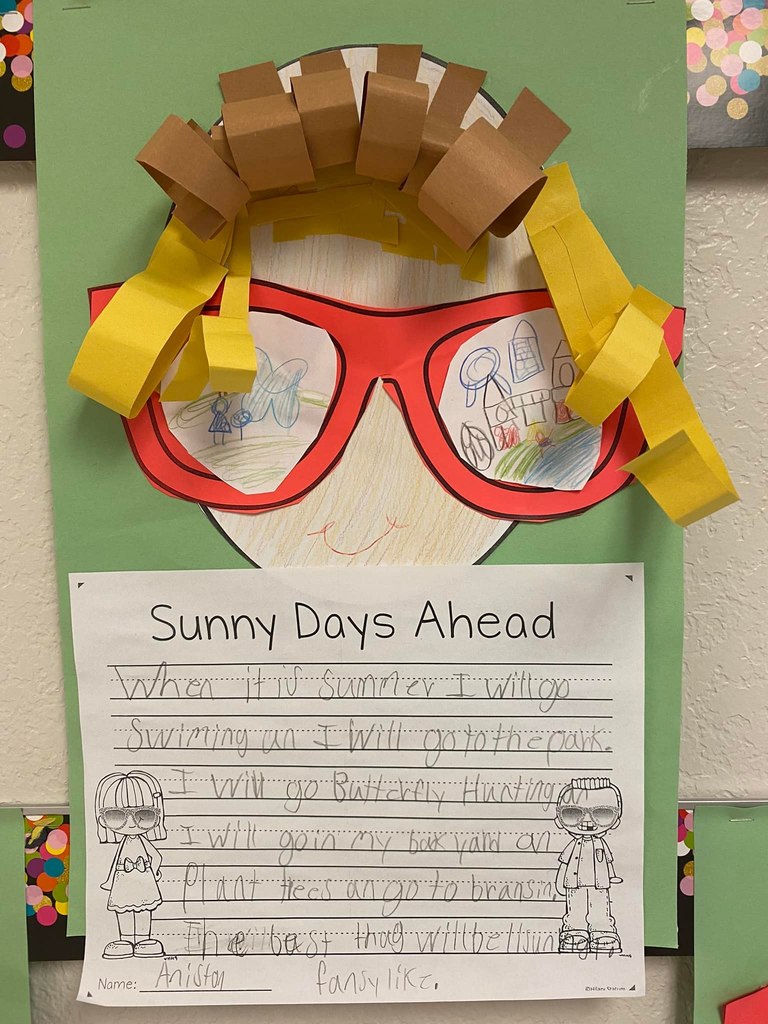 Sunny Days Ahead
When it is summer I will go
Swiming an I will go to the park.
I will go Butterfly Hunting an
I will go in my back yard an
Plant trees an go to bransin.
The best thag will be
Name: Aniston fansy like.